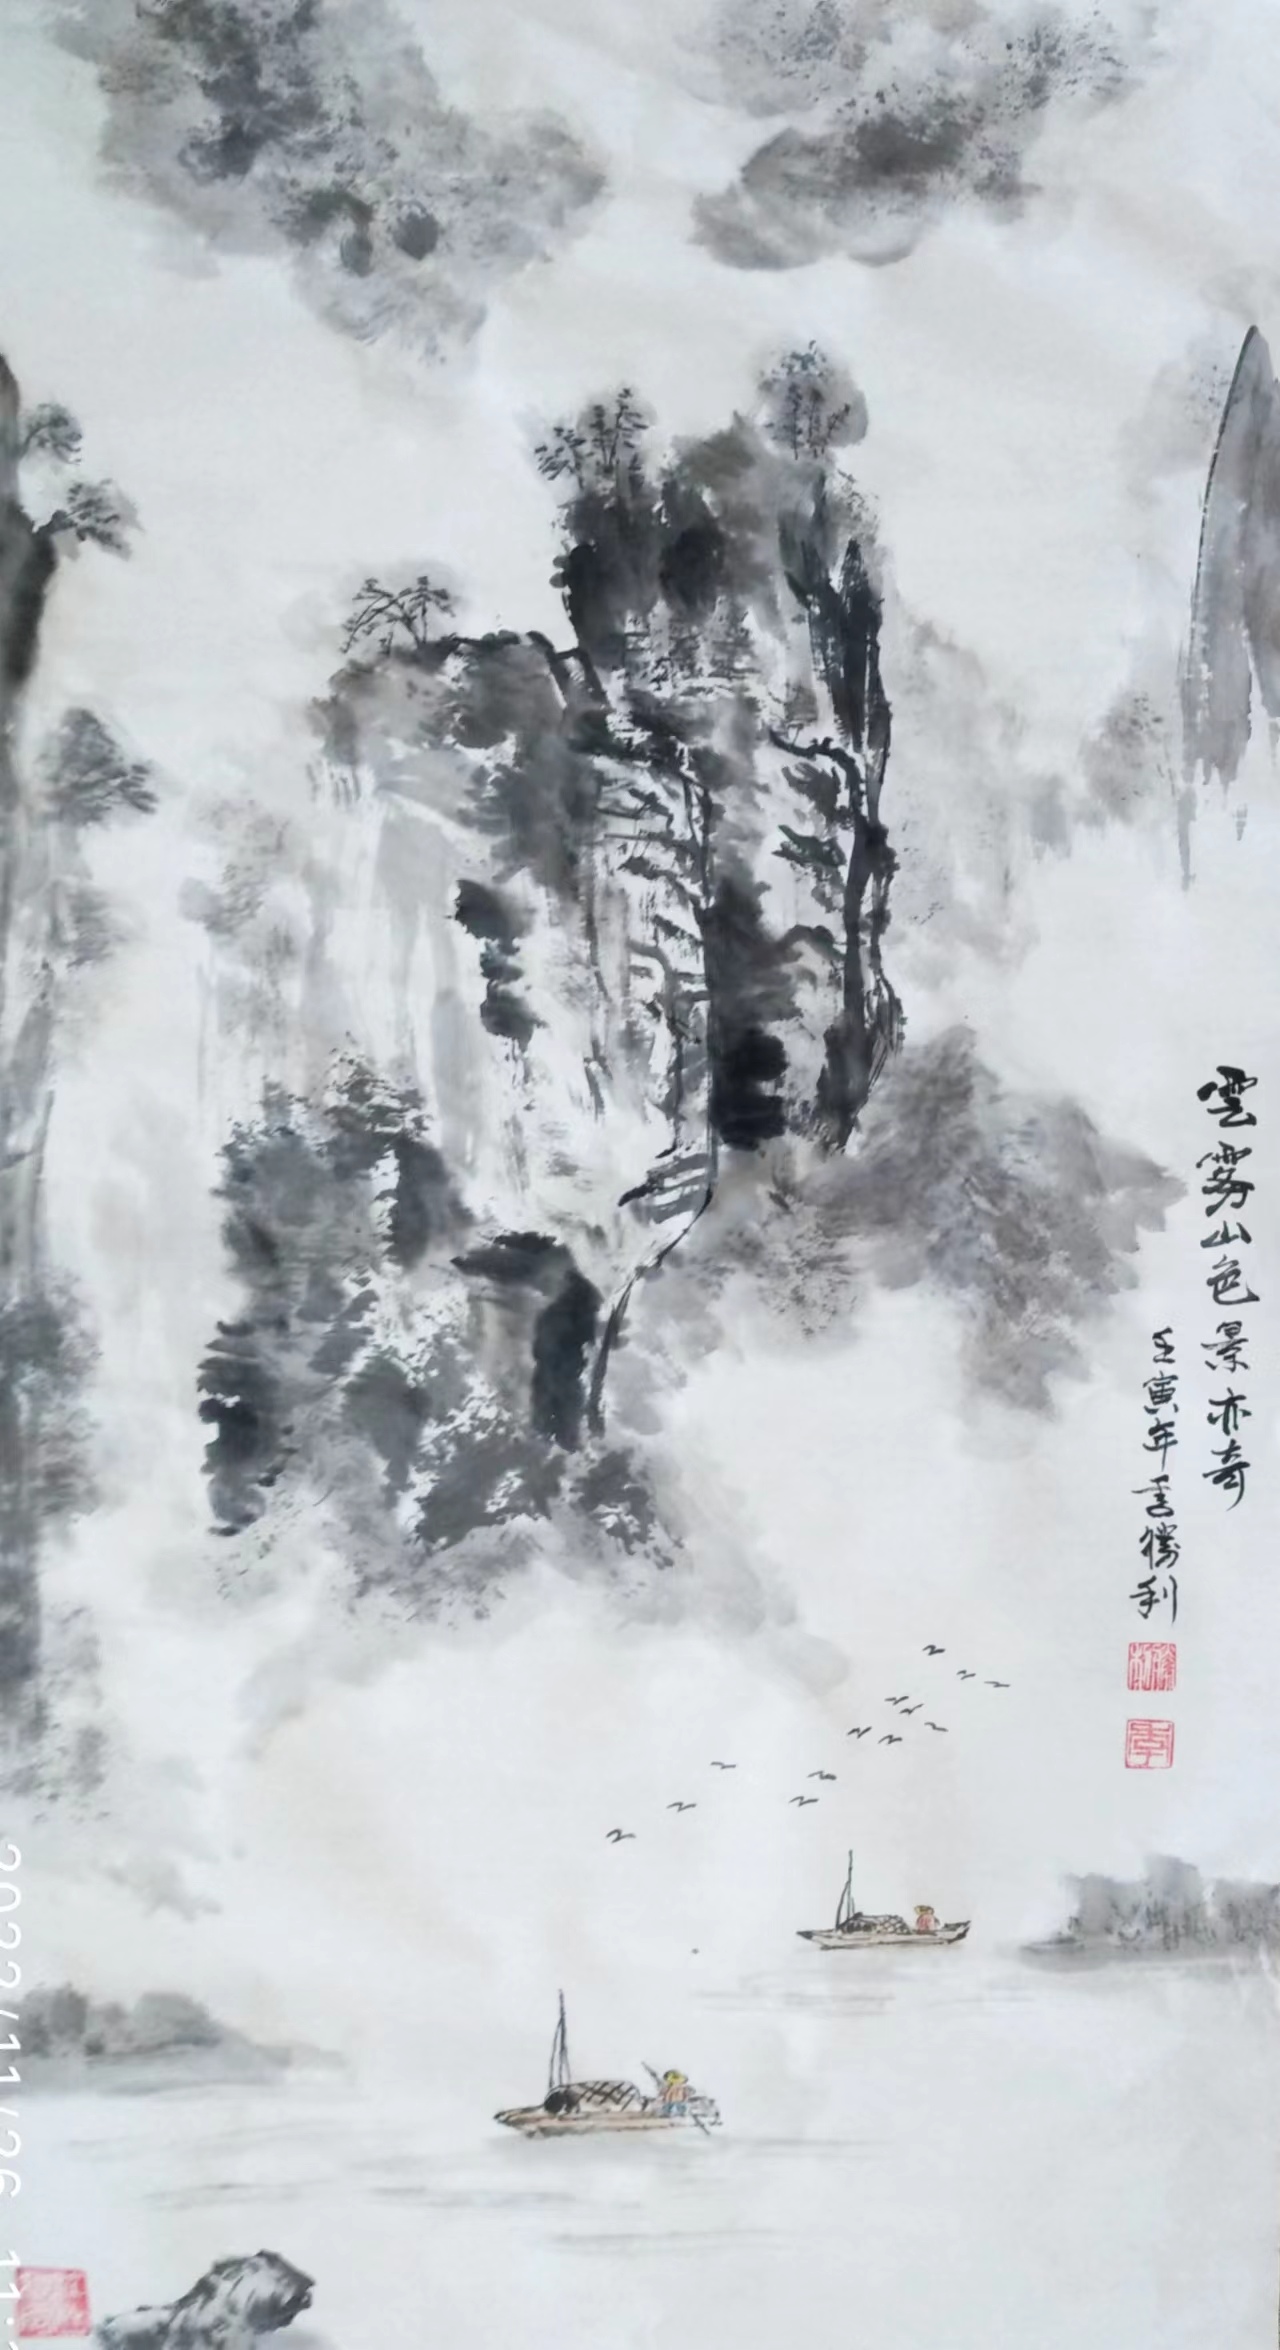 雲霧山色景亦奇
壬寅年季勝利
勝利
季
2022/11/26 11: